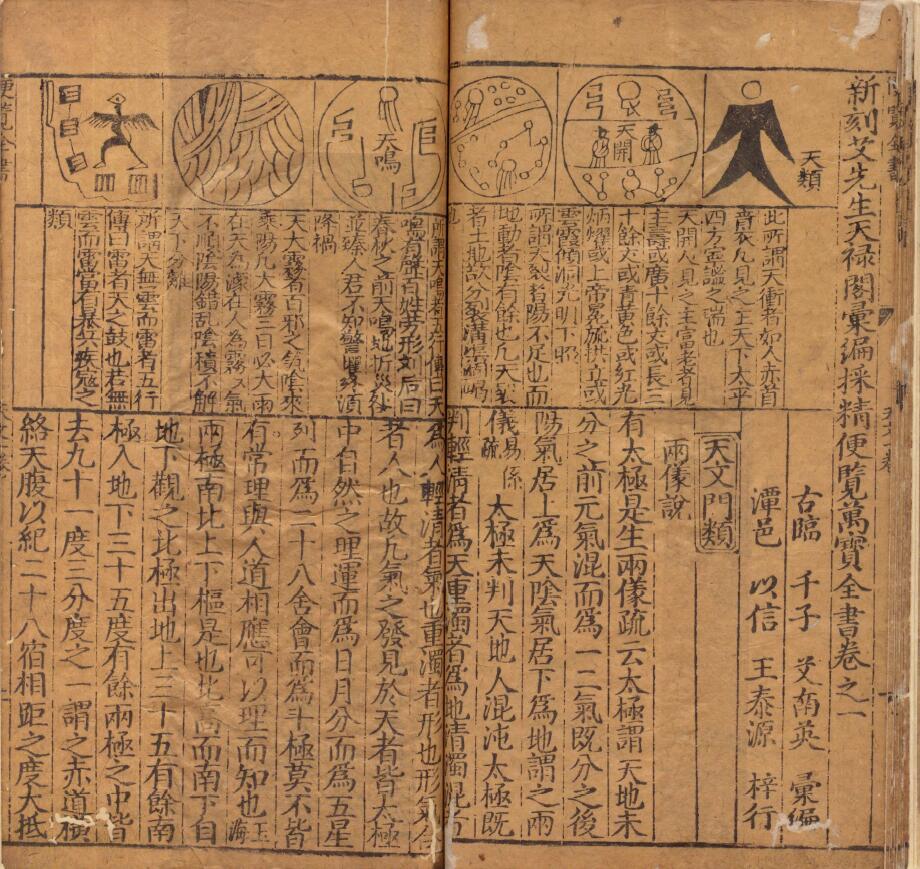 新刻艾先生天禄閣彙編採精便覽萬寶全書卷之一
古臨 千子 艾南英 彙編
潭邑 以信 王泰源 梓行
天類
此所謂天衝者如人赤首
青衣凡見之主天下太平
四方寧謐之瑞也
天開
天開人見之主富老者見
主壽或廣十餘丈或長二
十餘丈或青黃色或紅光
炳耀或上帝冕旒拱立或
雲霞傾洞光明下照
所謂天裂者陽不足也而
地動者陰有餘也凡天裂
者土地故分
也
天鳴
所謂天鳴者五行傳曰天
鳴有聲百姓勞形劉后曰
春秋之前天鳴地坼災处
並臻人君不知警懼終須
降禍
天大霧者百邪之氣陰來
乘陽凡大霧三日必大雨
在天為濛在人為霧霧氣
不順陰陽錯亂陰積不解
天下分離
所謂天無雲而雷者五行
傳曰雷者天之鼓也若無
雲而雷當有暴兵疾寇之
類
天文門類
兩儀說
有太極是生兩儀疏云太極謂天地未
分之前元氣混而爲一二氣既分之後
陽氣居上爲天陰氣居下爲地謂之兩
儀易係疏 太極未判天地人混沌太極既
判輕清者爲天重濁者爲地清濁混者
爲人輕清者氣也重濁者形也形氣合
者人也故凡氣之發見於天者皆太極
中自然之理運而爲日月分而爲五星
列而爲二十八舍會而爲斗極莫不皆
有常理與人道相應可以理而知也玉海
兩極南北上下樞是也北高而南下自
地下觀之北極出地上三十五有餘南
極入地下三十五度有餘兩極之中皆
去九十一度三分度之一謂之赤道橫
絡天腹以紀二十八宿相距之度大抵